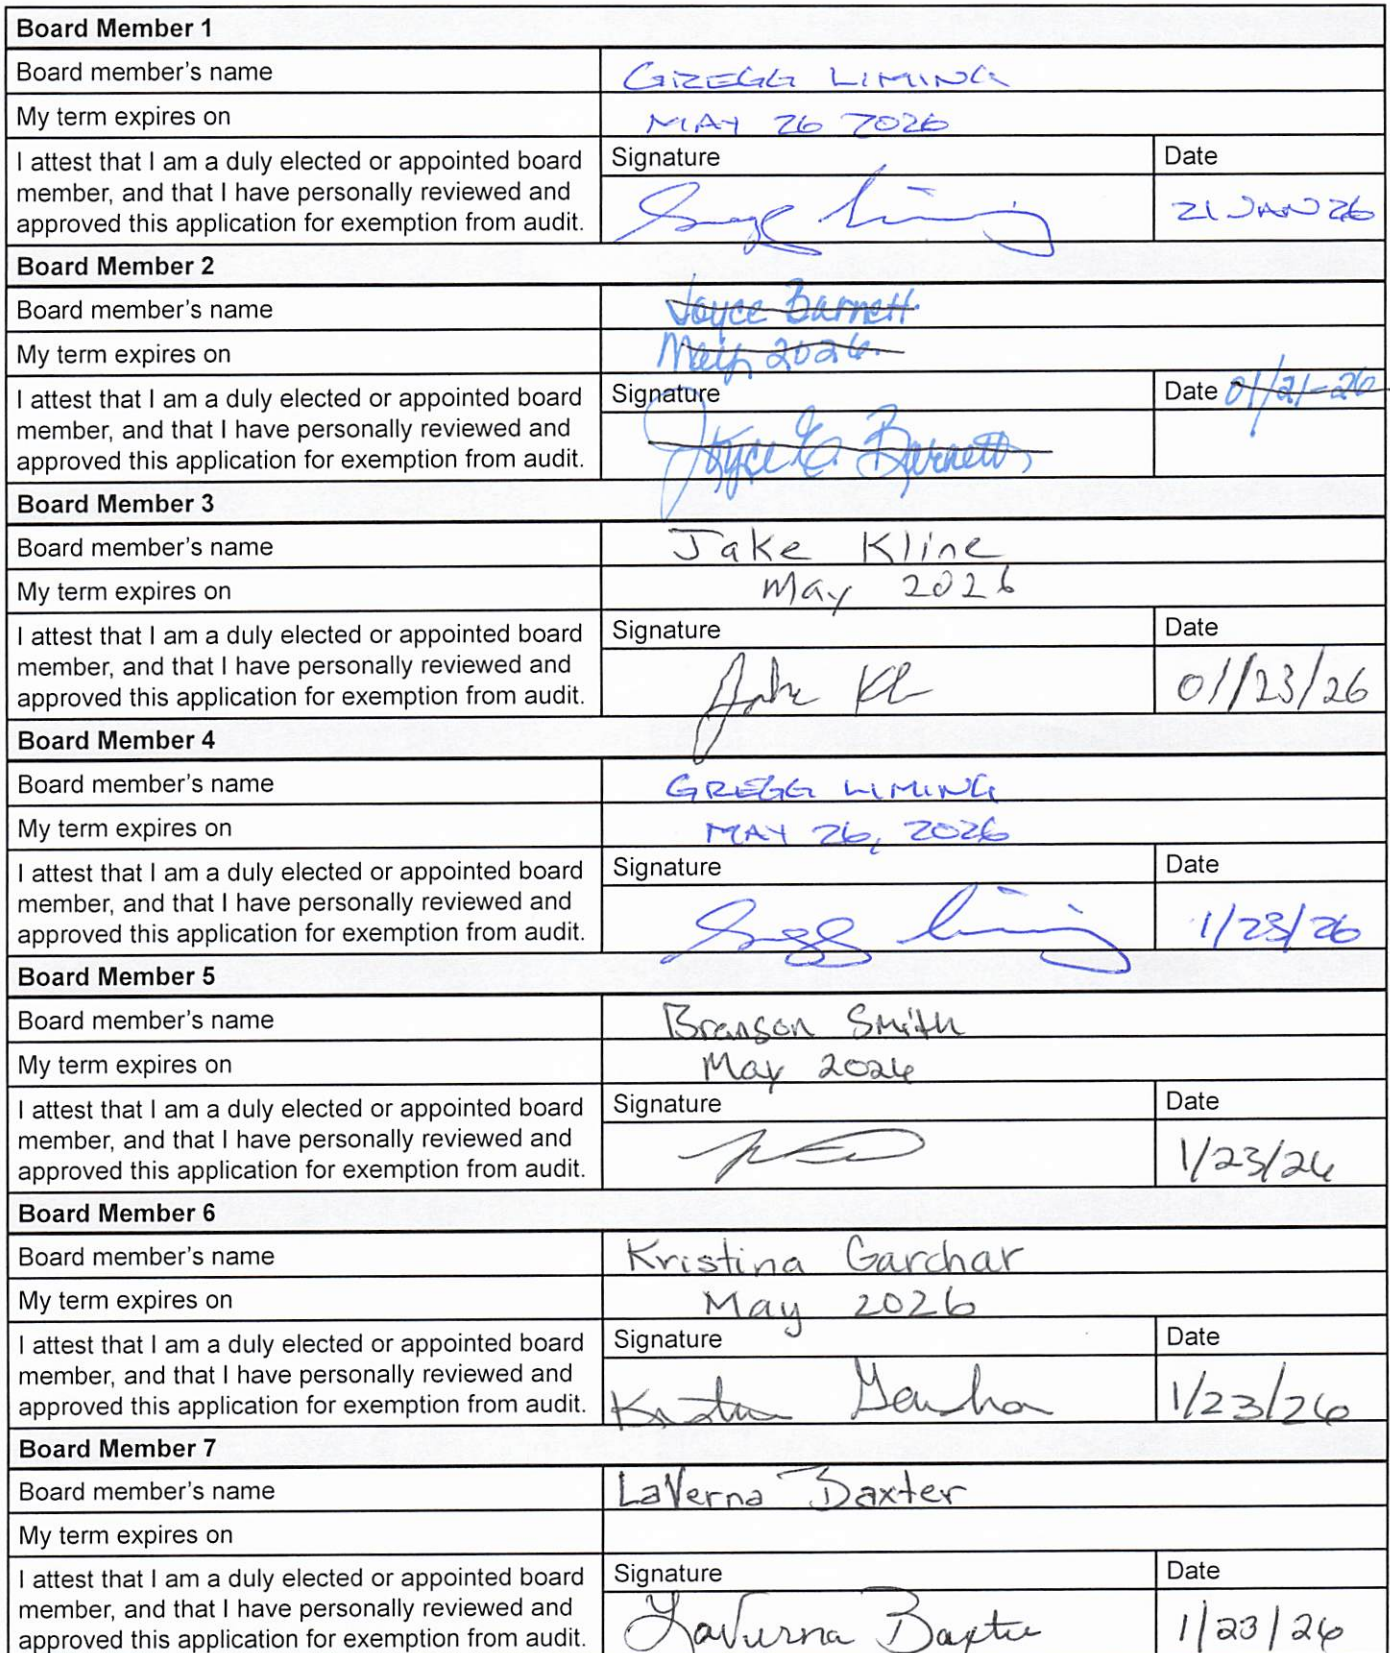 Board Member 1
Board member's name GREGG LIMING
My term expires on MAY 26 2026
I attest that I am a duly elected or appointed board Signature Date
member, and that I have personally reviewed and
approved this application for exemption from audit. Gregg Liming 21 JAN 26
Board Member 2
Board member's name Joyce Barnett
My term expires on May 2026.
I attest that I am a duly elected or appointed board Signature Date 01/21-26
member, and that I have personally reviewed and
approved this application for exemption from audit. Joyce E. Barnett
Board Member 3
Board member's name Jake Kline
My term expires on May 2026
I attest that I am a duly elected or appointed board Signature Date
member, and that I have personally reviewed and
approved this application for exemption from audit. 01/23/26
Board Member 4
Board member's name GREGG LIMING
My term expires on MAY 26, 2026
I attest that I am a duly elected or appointed board Signature Date
member, and that I have personally reviewed and
approved this application for exemption from audit. Gregg Liming 1/23/26
Board Member 5
Board member's name Branson Smith
My term expires on May 2026
I attest that I am a duly elected or appointed board Signature Date
member, and that I have personally reviewed and
approved this application for exemption from audit. 1/23/26
Board Member 6
Board member's name Kristina Garchar
My term expires on May 2026
I attest that I am a duly elected or appointed board Signature Date
member, and that I have personally reviewed and
approved this application for exemption from audit. 1/23/26
Board Member 7
Board member's name LaVerna Baxter
My term expires on
I attest that I am a duly elected or appointed board Signature Date
member, and that I have personally reviewed and
approved this application for exemption from audit. LaVerna Baxter 1/23/26